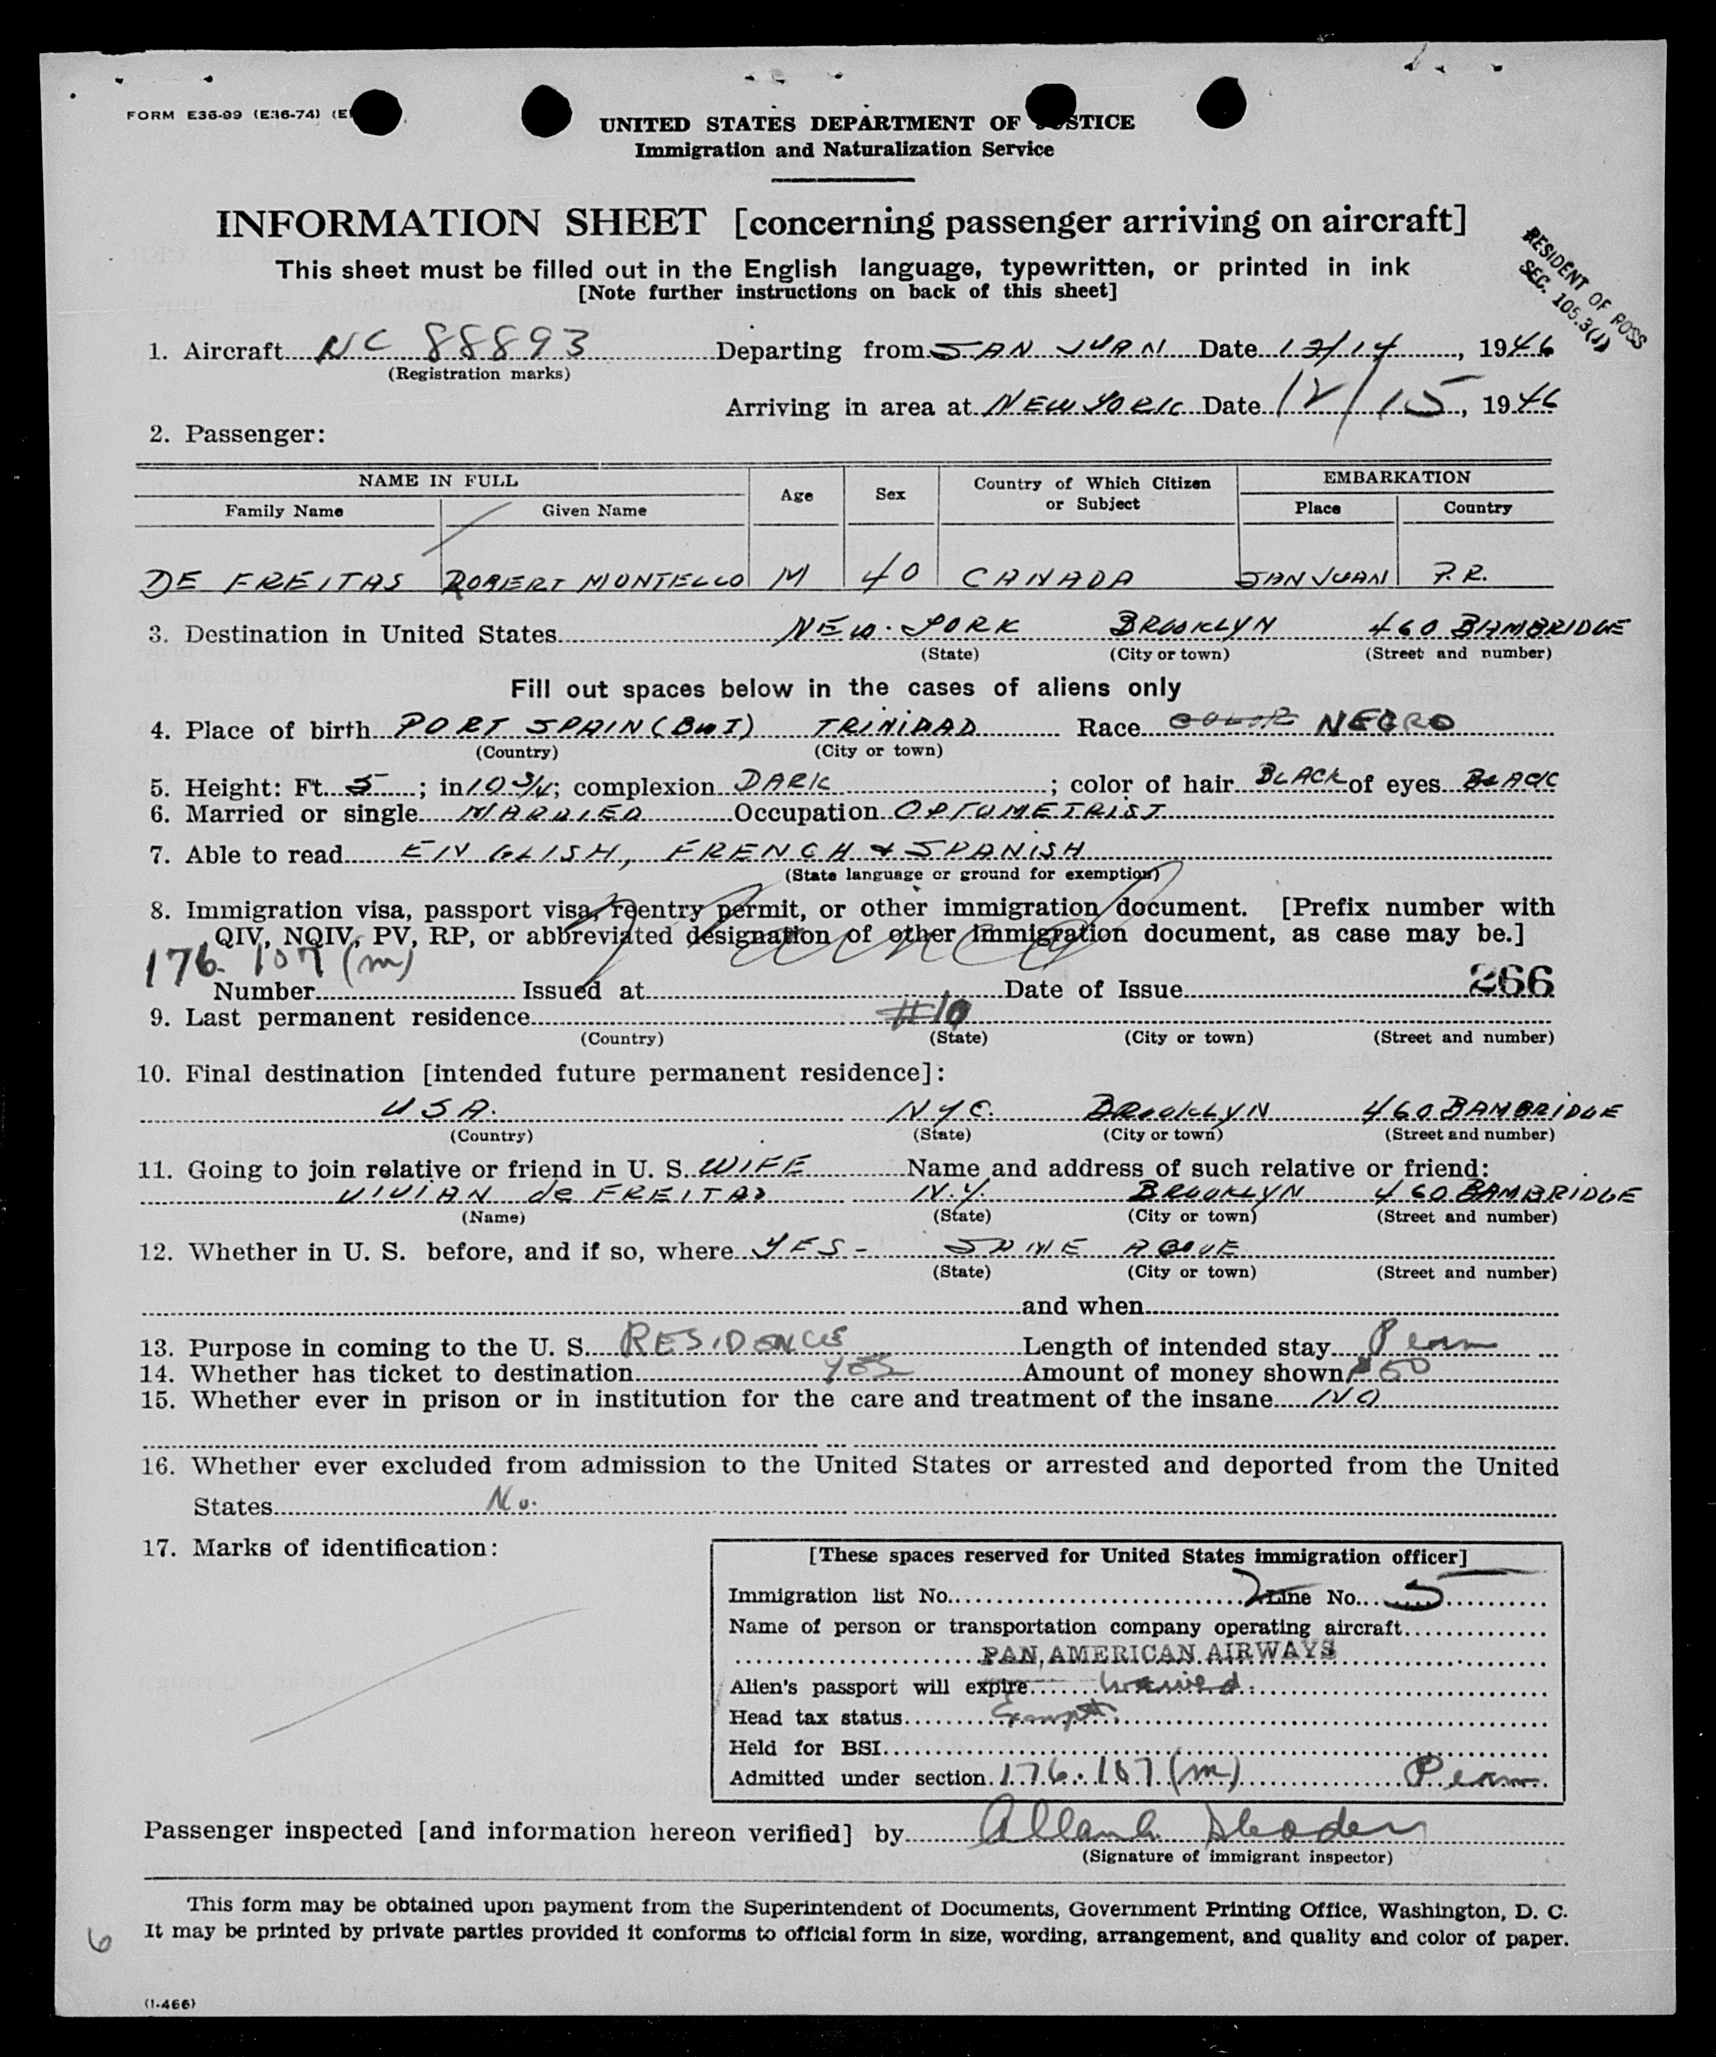 FORM E36-99 (E36-74)
UNITED STATES DEPARTMENT OF JUSTICE
Immigration and Naturalization Service
INFORMATION SHEET [concerning passenger arriving on aircraft]
This sheet must be filled out in the English language, typewritten, or printed in ink
[Note further instructions on back of this sheet]
RESIDENT OF POSS
SEC. 105.3(1)
1. Aircraft NC 88893 Departing from SAN JUAN Date 12/14, 1946
(Registration marks)
Arriving in area at NEW YORK Date 12/15, 1946
2. Passenger:
NAME IN FULL Age Sex Country of Which Citizen or Subject EMBARKATION
Family Name Given Name Place Country
DE FREITAS ROBERT MONTELLO M 40 CANADA SAN JUAN P.R.
3. Destination in United States NEW YORK BROOKLYN 460 BAMBRIDGE
(State) (City or town) (Street and number)
Fill out spaces below in the cases of aliens only
4. Place of birth PORT SPAIN (BWI) TRINIDAD Race COLOR NEGRO
(Country) (City or town)
5. Height: Ft. 5; in 10 3/4; complexion DARK; color of hair BLACK of eyes BLACK
6. Married or single MARRIED Occupation OPTOMETRIST
7. Able to read ENGLISH, FRENCH & SPANISH
(State language or ground for exemption)
8. Immigration visa, passport visa, reentry permit, or other immigration document. [Prefix number with
QIV, NQIV, PV, RP, or abbreviated designation of other immigration document, as case may be.]
176.107(m)
Number Issued at Date of Issue 266
9. Last permanent residence #10
(Country) (State) (City or town) (Street and number)
10. Final destination [intended future permanent residence]:
USA. NYC. BROOKLYN 460 BAMBRIDGE
(Country) (State) (City or town) (Street and number)
11. Going to join relative or friend in U. S. WIFE Name and address of such relative or friend:
VIVIAN de FREITAS N.Y. BROOKLYN 460 BAMBRIDGE
(Name) (State) (City or town) (Street and number)
12. Whether in U. S. before, and if so, where YES - SAME ABOVE
(State) (City or town) (Street and number)
and when
13. Purpose in coming to the U. S. RESIDENCE Length of intended stay Perm
14. Whether has ticket to destination YES Amount of money shown $50
15. Whether ever in prison or in institution for the care and treatment of the insane NO
16. Whether ever excluded from admission to the United States or arrested and deported from the United
States No.
17. Marks of identification:
[These spaces reserved for United States immigration officer]
Immigration list No. 2 Line No. 5
Name of person or transportation company operating aircraft
PAN AMERICAN AIRWAYS
Alien's passport will expire waived
Head tax status Exempt
Held for BSI
Admitted under section 176.107(m) Perm
Passenger inspected [and information hereon verified] by
(Signature of immigrant inspector)
This form may be obtained upon payment from the Superintendent of Documents, Government Printing Office, Washington, D. C.
It may be printed by private parties provided it conforms to official form in size, wording, arrangement, and quality and color of paper.
6
(I-466)